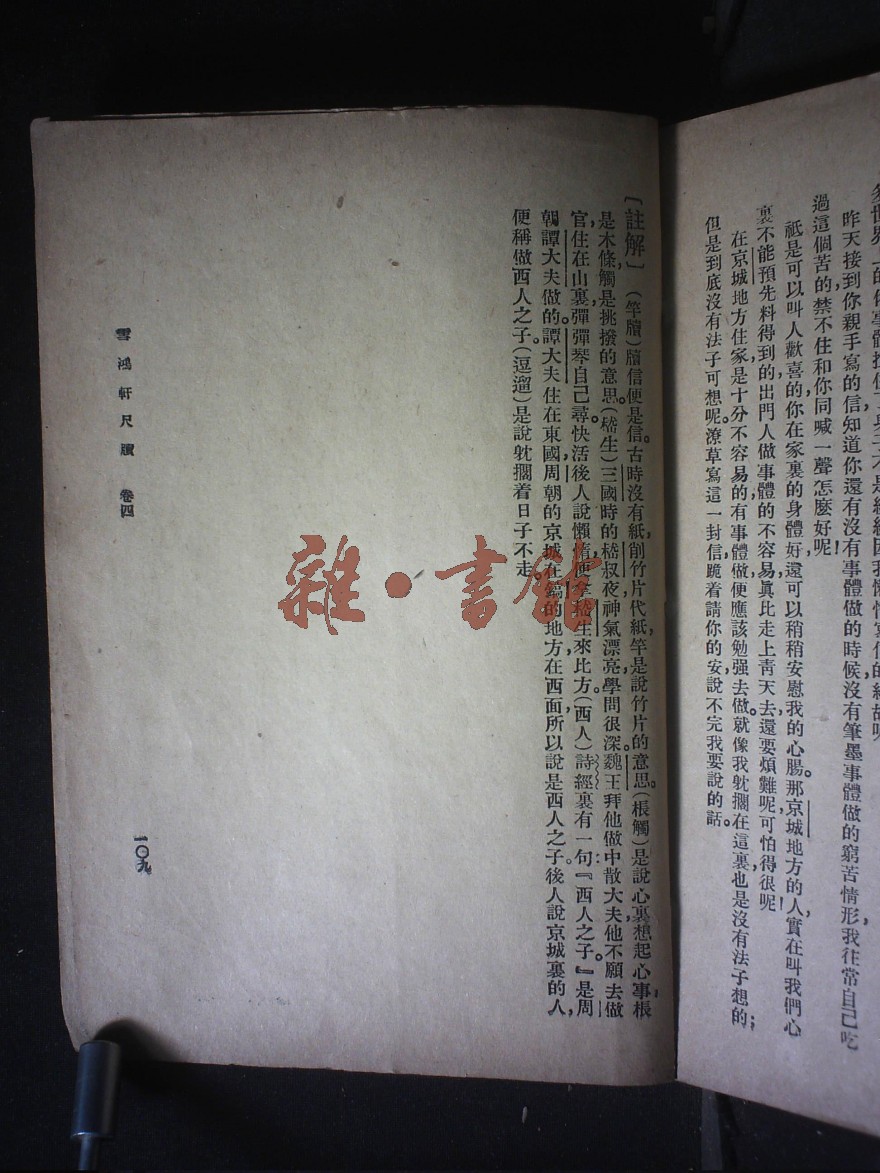 昨天接到你親手寫的信，知道你還有沒有事體做的時候，沒有筆墨事體做的窮苦情形，我往常自己吃
過這個苦的，禁不住和你同喊一聲怎麼好呢！
祇是可以叫人歡喜的，你在家裏的身體好，還可以稍稍安慰我的心腸。那京城地方的人，實在叫我們心
裏不能預先料得到的，出門人做事體的不容易，真比走上靑天去還要煩難呢，可怕得很呢！
在京城地方住家，是十分不容易的，有事體做，便應該勉强去做。就像我躭擱在這裏，也是沒有法子想的；
但是到底沒有法子可想呢。潦草寫這一封信，跪着請你的安，說不完我要說的話。
〔註解〕（竿牘）牘信便是信。古時沒有紙，削竹片代紙，竿是說竹片的意思。（棖觸）是說心裏想起心事，棖
是木條，觸是挑撥的意思。（嵇生）三國時的嵇叔夜，神氣漂亮，學問很深。魏王拜他做中散大夫，他不願去做
官，住在山裏，彈彈琴，自己尋快活，後人說懶惰，便拿嵇生來比方。（西人）詩經裏有一句：『西人之子。』是周
朝譚大夫做的。譚大夫住在東國，周朝的京城，在鎬的地方，在西面，所以說是西人之子。後人說京城裏的人，
便稱做西人之子。（逗遛）是說躭擱着日子不走。
雪鴻軒尺牘　卷四
一〇九
雜·書館